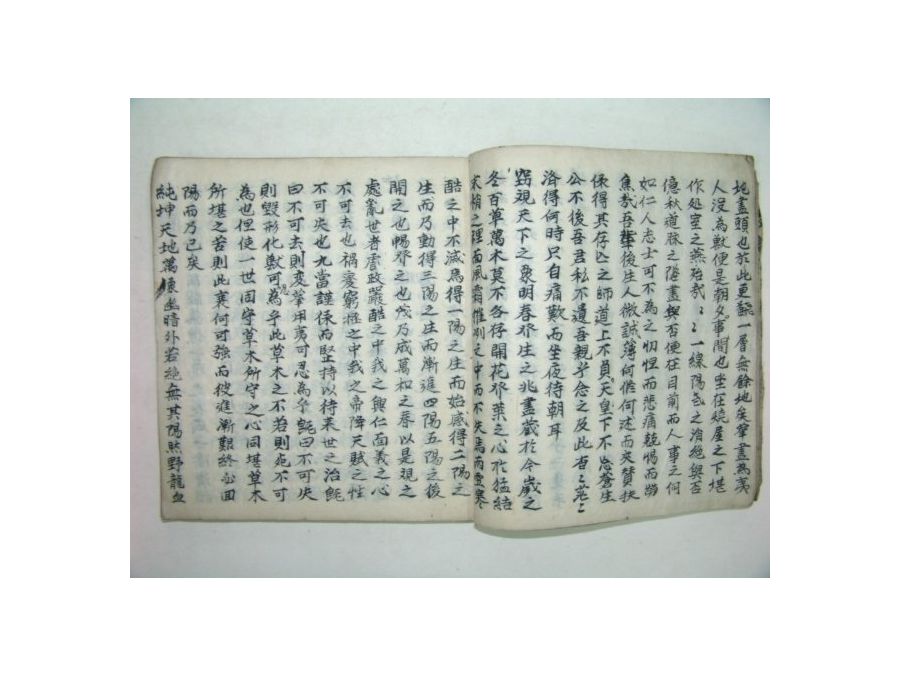 地盡頭也於此更翻一層無餘地矣華盡為夷
人沒為獸便是朝夕事間也坐在燒屋之下堪
作処堂之燕殆哉〻〻一線陽氣之消絶與否
億秋道脉之墜盡與否便在目前而人事之何
如仁人志士可不為之忉怛而悲痛兢惕而
焦哉吾輩後生人微誠薄何俻何述而夾賛扶
係得其存亡之師道上不負天皇下不忘蒼生
公不後吾君私不遺吾親乎念之及此杳〻茫〻
洛得何時只自痛歎而坐夜待朝耳
窃視天下之象明春發生之兆盡藏於今歲之
冬百草萬木莫不各存開花發葉之心牝猛結
末稍之經而風霜摧剥之中而不失焉雨雪寒
酷之中不滅焉得一陽之生而始感得二陽之
生而乃動得三陽之生而漸進四陽五陽之後
開之也暢發之也茂乃成萬和之春以是觀之
處亂世者虐政嚴酷之中我之興仁面義之心
不可去也禍變窮極之中我之帝降天賦之性
不可失也九當謹保而堅持以待来世之治
曰不可去則変華用夷可忍為乎既曰不可失
則毁形化獸可為乎此草木之不若則死不可
為也但使一世固守草木所守之心同堪草木
所堪之苦則此寒何可強而彼進漸艱終必回
陽而乃已矣
純坤天地萬像幽暗外若絶無其陽然野龍血